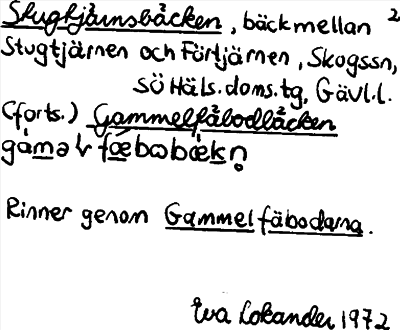 Stugtjärnsbäcken, bäck mellan 2
Stugtjärnen och Förtjärnen, Skogssn,
SÖ Häls.doms.tg, Gävl.l.
(forts.) Gammelfäbodbäcken
Rinner genom Gammelfäbodarna.
Eva Lokander 1972